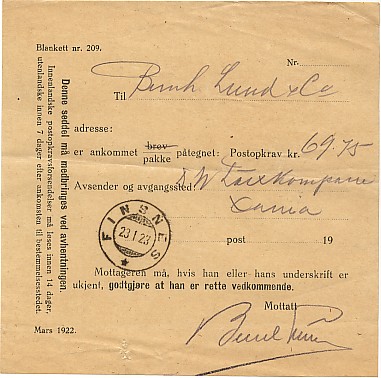 Blankett nr. 209.
Nr.
Til Bernh Lund & Co
adresse:
er ankommet brev pakke påtegnet: Postopkrav kr. 69.75
Avsender og avgangssted:
Xania
FINSNES
23 1 23
post 19
Mottageren må, hvis han eller hans underskrift er
ukjent, godtgjøre at han er rette vedkommende.
Mottatt
Mars 1922.
Denne seddel må medbringes ved avhentningen.
Innenlandske postopkravsforsendelser må løses innen 14 dager,
utenlandske innen 7 dager efter ankomsten til bestemmelsesstedet.